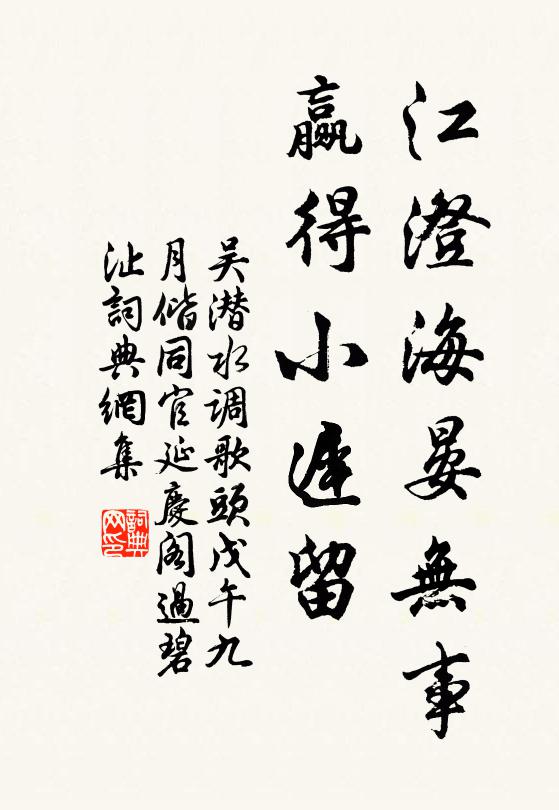 江澄海晏無事
贏得小遲留
吴潜水调歌頭戊午九
月偕同官延慶阁過碧
沚詞典網集
詞典网印